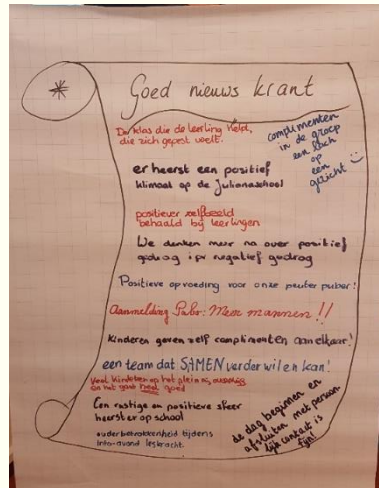 Goed nieuws krant
De klas die de leerling helpt,
die zich gepest voelt.
complimenten
in de groep
een lach
op
een
gezicht
er heerst een positief
klimaat op de Julianaschool
positiever zelfbeeld
behaald bij leerlingen
We denken meer na over positief
gedrag ipv negatief gedrag
Positieve opvoeding voor onze peuter puber!
Aanmelding Pabo: Meer mannen!!
Kinderen geven zelf complimenten aan elkaar!
een team dat SAMEN verder wil en kan!
Veel kinderen op het plein
en het gaat heel goed
Een rustige en positieve sfeer
heerst er op school
ouderbetrokkenheid tijdens
info-avond leskracht.
de dag beginnen en
afsluiten met persoon-
lijk contact is
fijn!